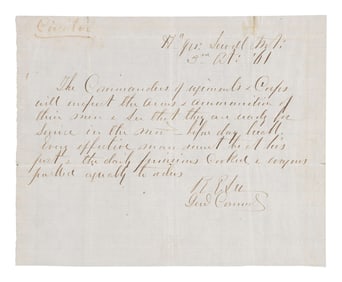 Circular
Hd Qrs: Sewell Mt:
3rd Oct: '61
The Commanders of regiments & Corps
will inspect the arms & ammunition of
their men & see that they are ready for
service in the morn - before day light
every effective man must be at his
post & the daily provisions cooked & wagons
packed equally to
R E Lee
Genl Commdg